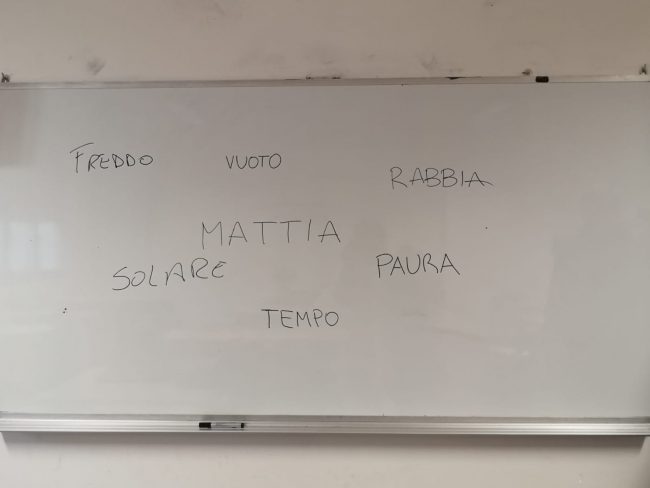 FREDDO VUOTO RABBIA
MATTIA
SOLARE PAURA
TEMPO